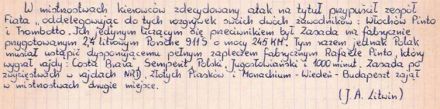 W mistrzostwach kierowców zdecydowany atak na tytuł przypuścił zespół
Fiata, oddelegowując do tych rozgrywek swoich dwóch zawodników: Włochów Pinto
i Trombotto. Ich jedynym liczącym się przeciwnikiem był Zasada na fabrycznie
przygotowanym 2,4 litrowym Porsche 911S o mocy 245 KM. Tym razem jednak Polak
musiał ustąpić dysponującemu pełnym zapleczem fabrycznym Rafaelle Pinto, który
wygrał rajdy: Costa Brava, Semperit, Polski, Jugosłowiański i 1000 minut. Zasada po
zwycięstwach w rajdach NRD, Złotych Piasków i Monachium - Wiedeń - Budapeszt zajął
w mistrzostwach drugie miejsce.
(J. A. Litwin)